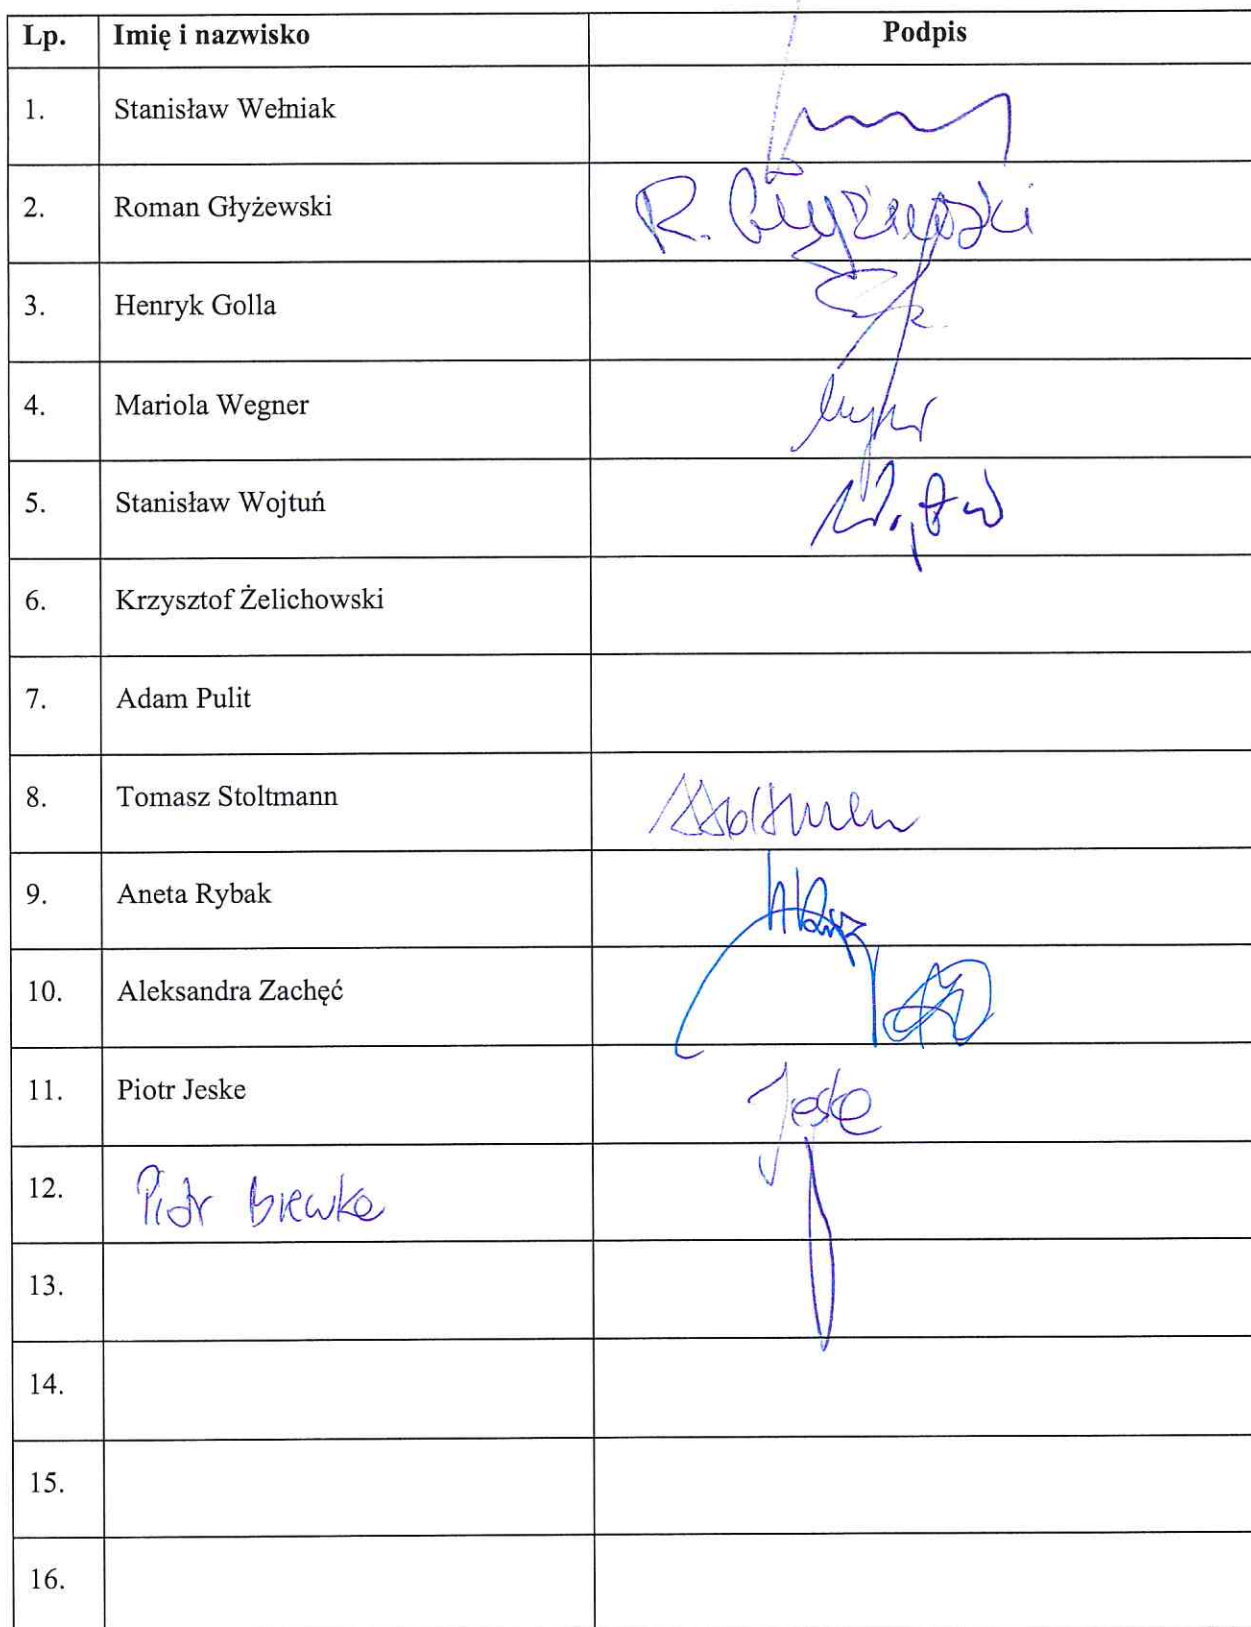 Lp. Imię i nazwisko Podpis
1. Stanisław Wełniak
2. Roman Głyżewski R. Głyżewski
3. Henryk Golla
4. Mariola Wegner
5. Stanisław Wojtuń
6. Krzysztof Żelichowski
7. Adam Pulit
8. Tomasz Stoltmann
9. Aneta Rybak
10. Aleksandra Zachęć
11. Piotr Jeske Jeske
12. Piotr
13.
14.
15.
16.